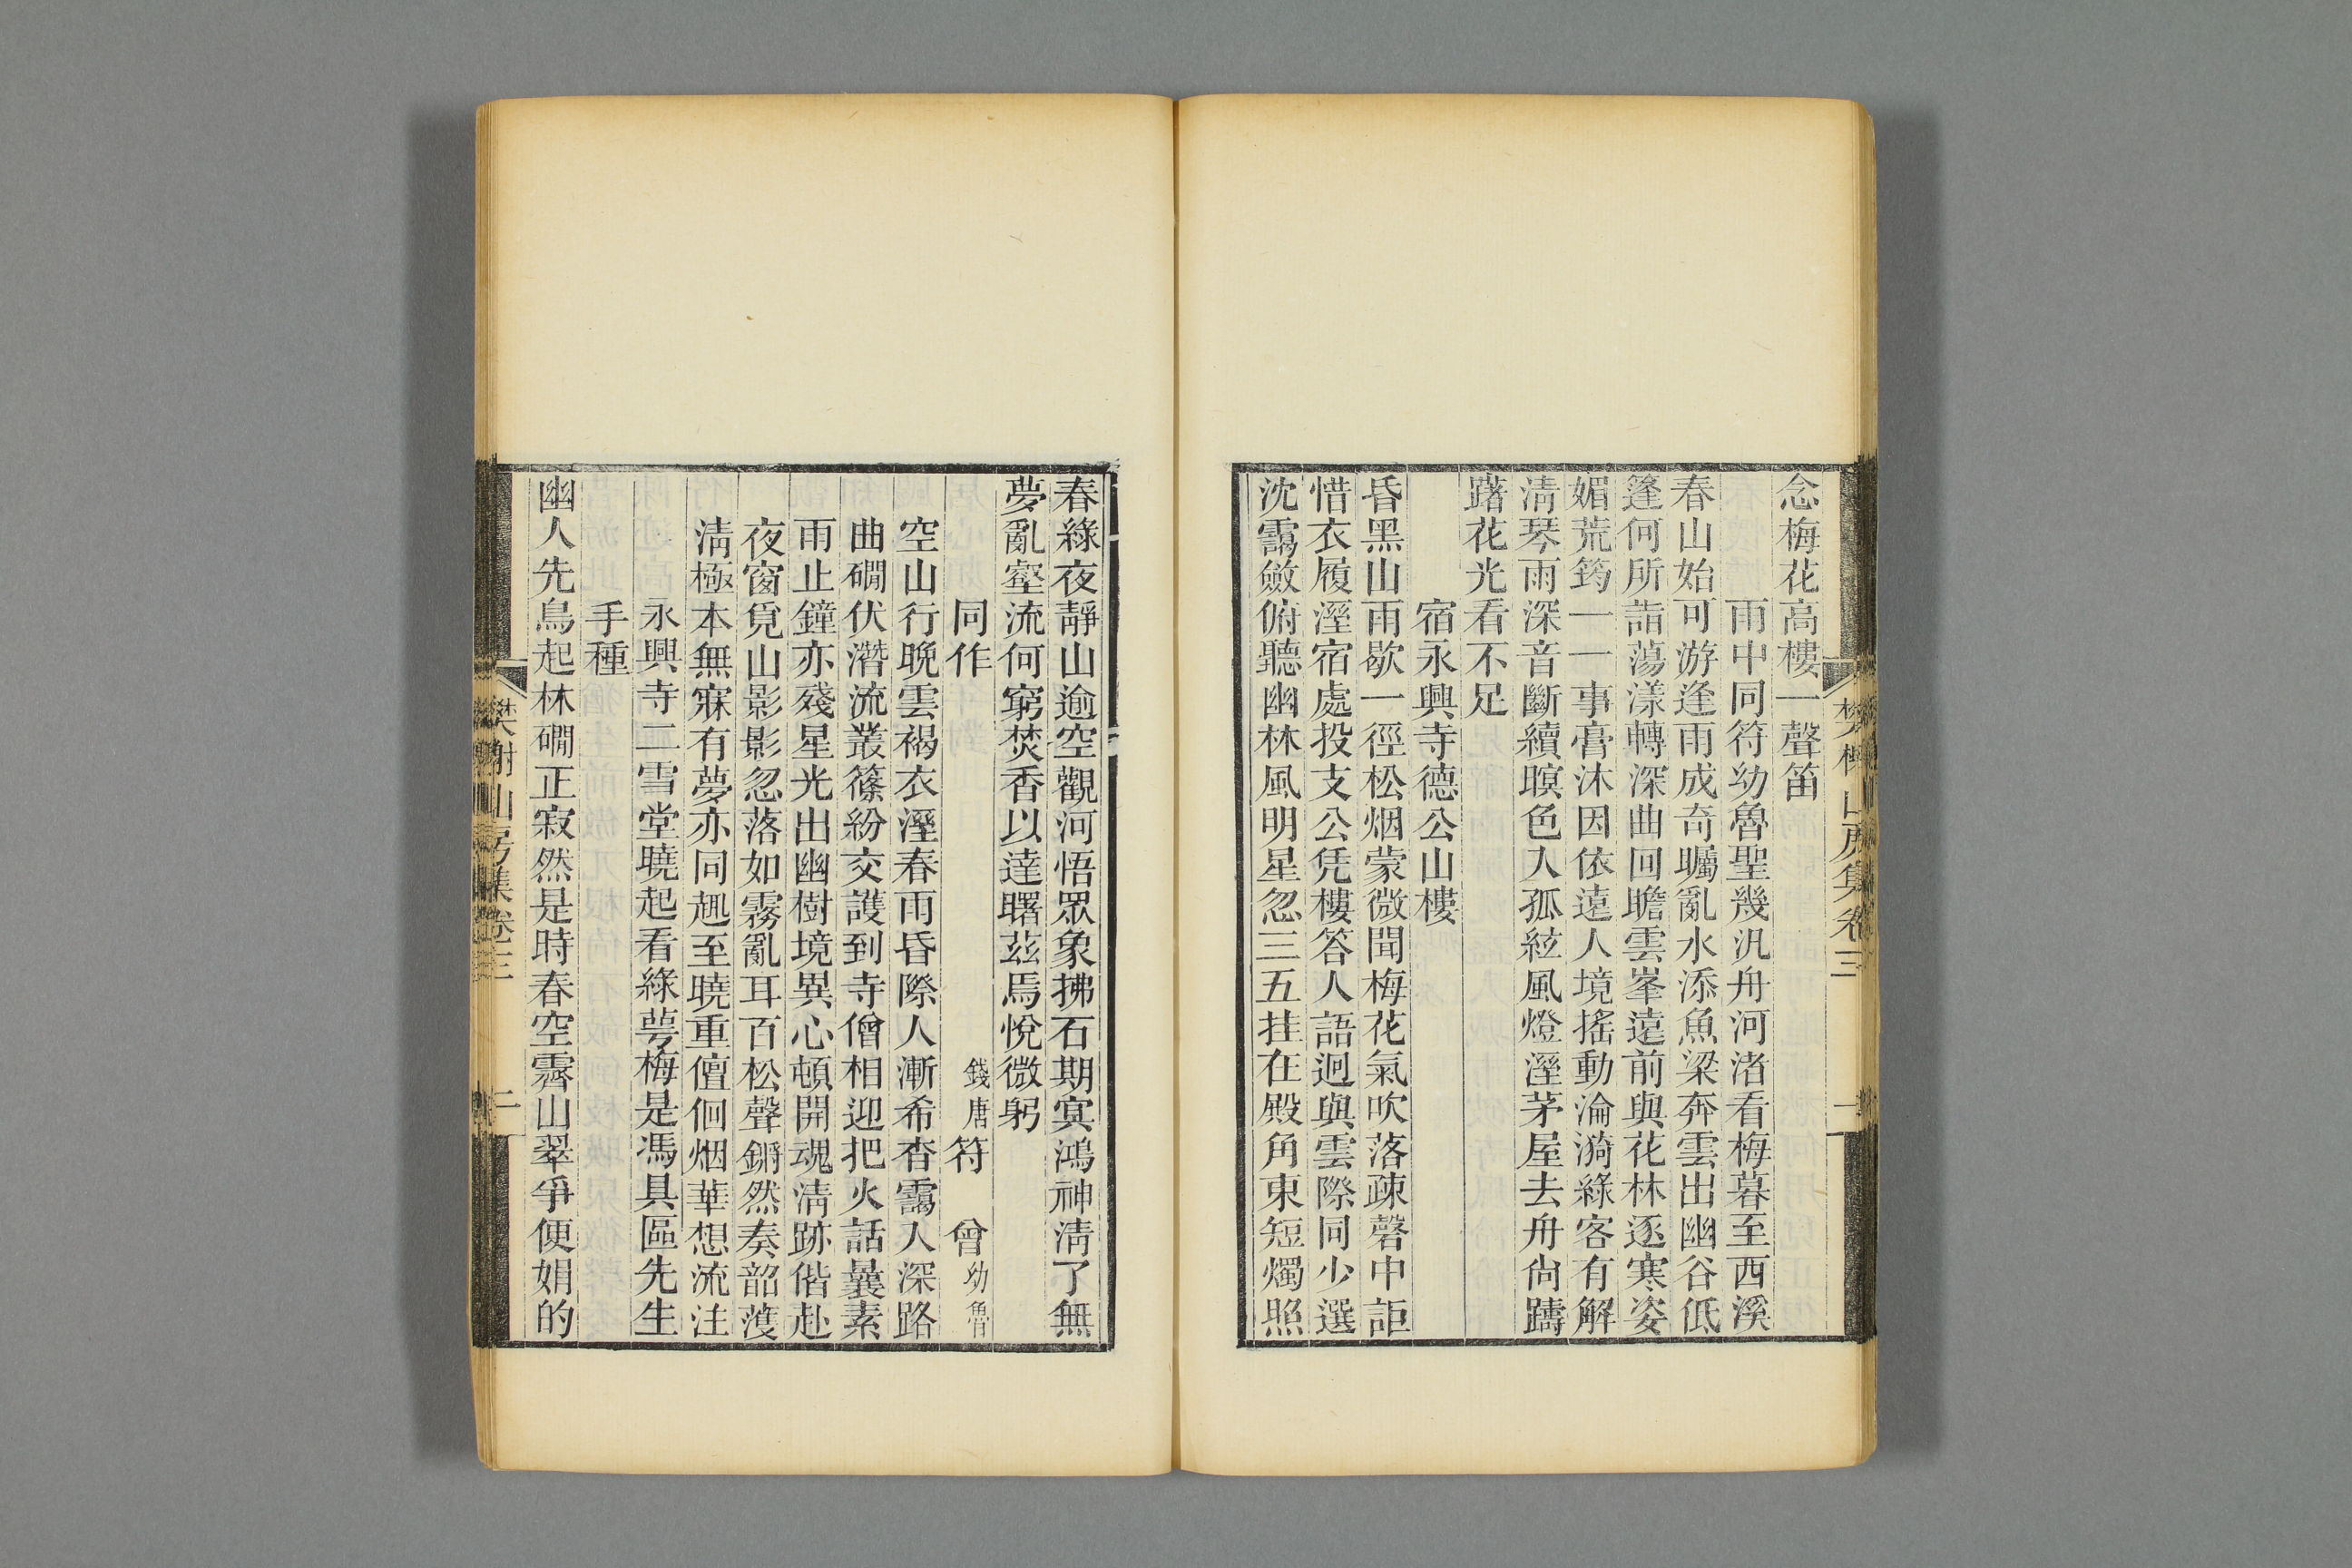 樊榭山房集卷三
念梅花高樓一聲笛
雨中同符幼魯聖幾汎舟河渚看梅暮至西溪
春山始可游逢雨成奇矚亂水添魚梁奔雲出幽谷低
篷何所詣蕩漾轉深曲回瞻雲峯遠前與花林逐寒姿
媚荒筠一一事膏沐因依遠人境搖動淪漪綠客有解
清琴雨深音斷續暝色入孤絃風燈溼茅屋去舟尙躊
躇花光看不足
宿永興寺德公山樓
昏黑山雨歇一徑松烟蒙微聞梅花氣吹落疎磬中詎
惜衣履溼宿處投支公凭樓答人語迥與雲際同少選
沈靄斂俯聽幽林風明星忽三五挂在殿角東短燭照
春綠夜靜山逾空觀河悟眾象拂石期冥鴻神淸了無
夢亂壑流何窮焚香以達曙茲焉悅微躬
同作 錢唐 符 曾 幼魯
空山行晚雲褐衣溼春雨昏際人漸希杳靄入深路
曲磵伏潛流叢篠紛交護到寺僧相迎把火話曩素
雨止鐘亦殘星光出幽樹境異心頓開魂淸跡偕赴
夜窗覓山影影忽落如霧亂耳百松聲鏘然奏韶頀
淸極本無寐有夢亦同趣至曉重儃佪烟華想流注
永興寺二雪堂曉起看綠萼梅是馮具區先生
手種
幽人先鳥起林磵正寂然是時春空霽山翠爭便娟的
樊榭山房集卷三
二